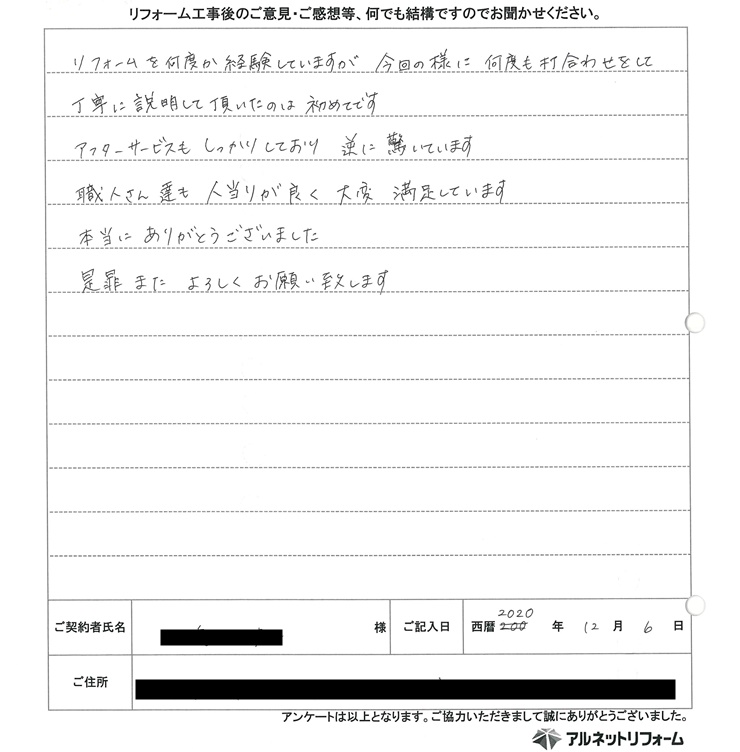 リフォーム工事後のご意見・ご感想等、何でも結構ですのでお聞かせください。
リフォームを何度か経験していますが 今回の様に 何度も打合わせをして
丁寧に説明して頂いたのは 初めてです
アフターサービスも しっかりしており 逆に 驚いています
職人さん達も 人当りが良く 大変 満足しています
本当に ありがとうございました
是非 また よろしく お願い致します
ご契約者氏名 様 ご記入日 西暦 2020 200 年 12 月 6 日
ご住所
アンケートは以上となります。ご協力いただきまして誠にありがとうございました。
アルネットリフォーム